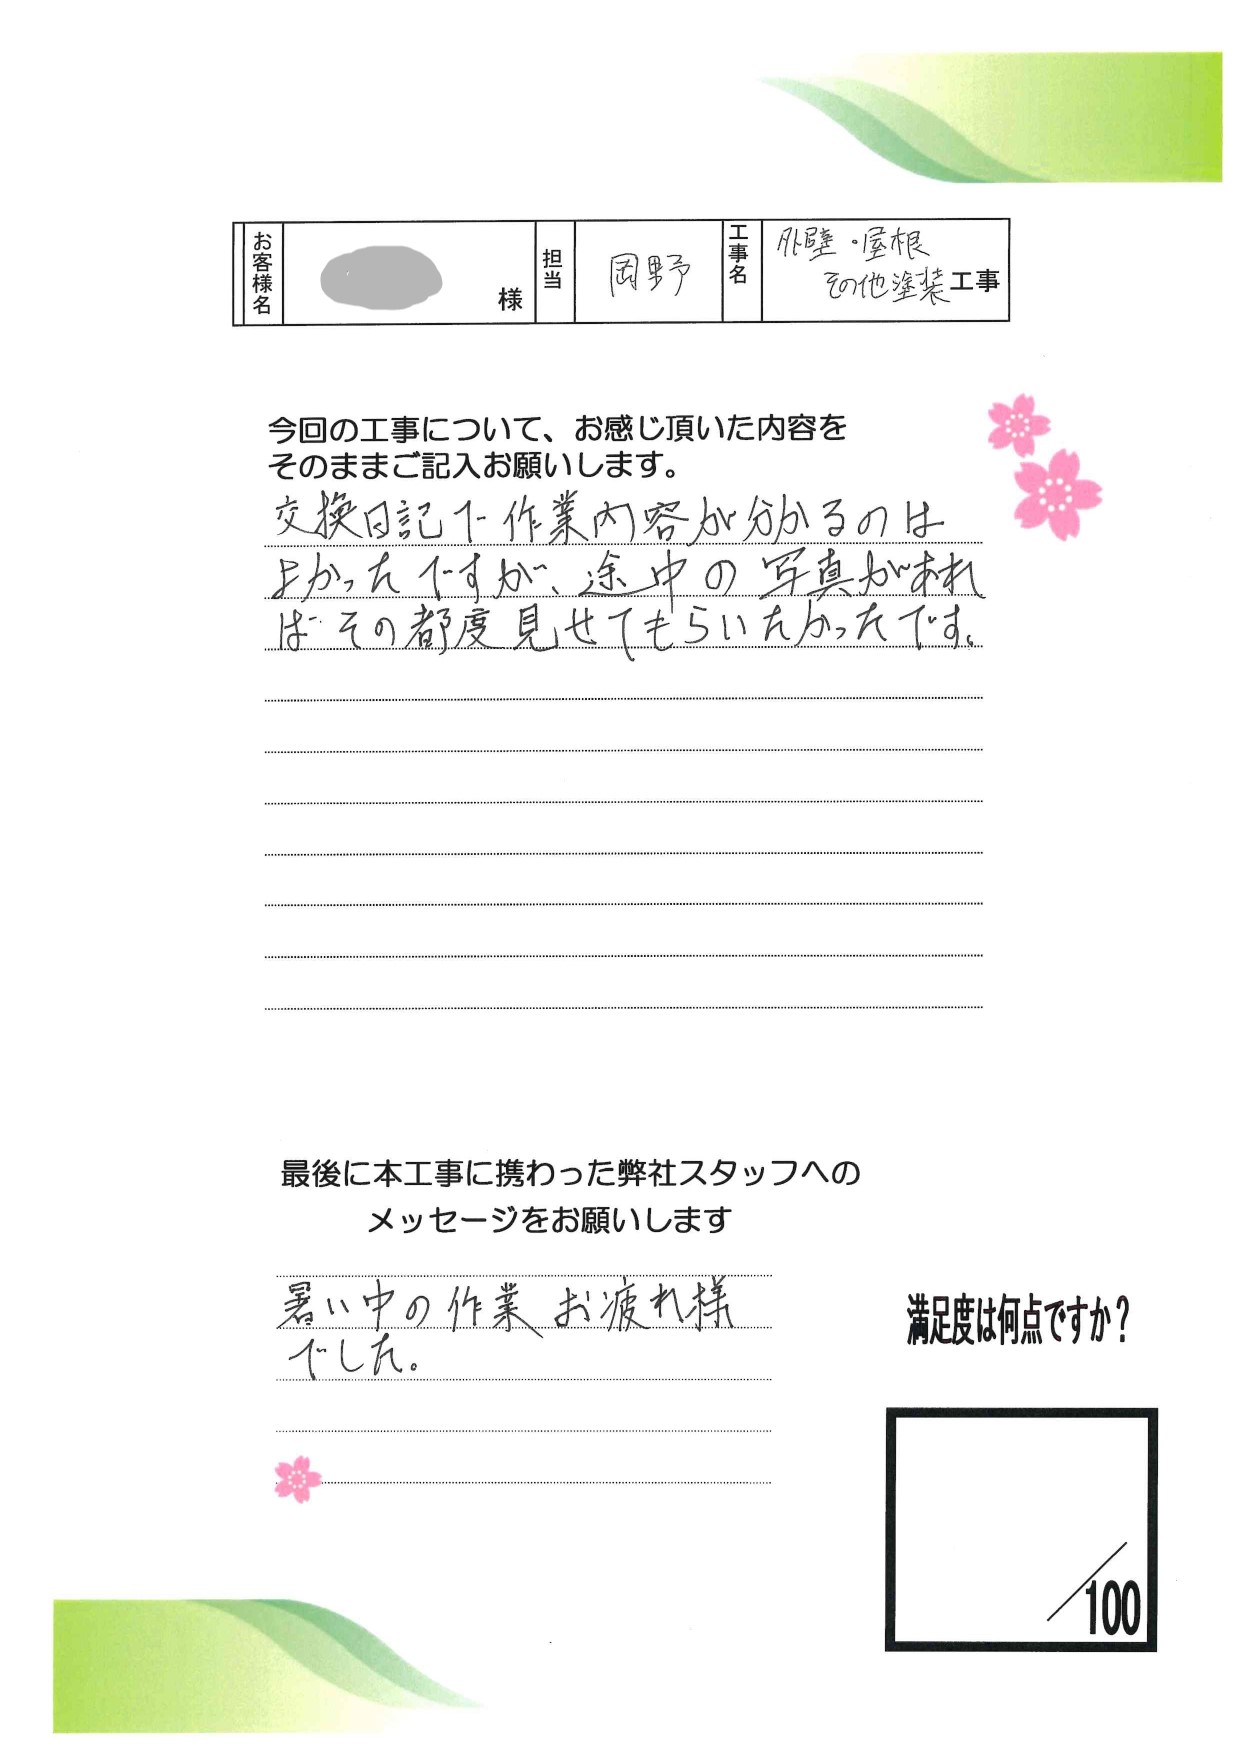 お客様名
様
担当
岡野
工事名
外壁・屋根
その他塗装工事
今回の工事について、お感じ頂いた内容を
そのままご記入お願いします。
交換日記で作業内容が分かるのは
よかったですが、途中の写真があれ
ばその都度見せてもらいたかったです。
最後に本工事に携わった弊社スタッフへの
メッセージをお願いします
暑い中の作業お疲れ様
でした。
満足度は何点ですか?
/100